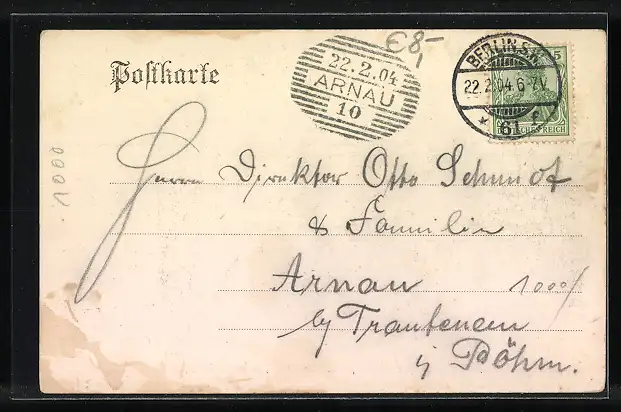 Postkarte
€8,-
22.2.04
ARNAU
10
BERLIN S.W.
22.2.04.6-7V.
* 61 f
5
DEUTSCHES REICH
1000
Herrn Direktor Otto Schmidt
& Familie
Arnau
1000/
by Trautenau
i/ Böhm.